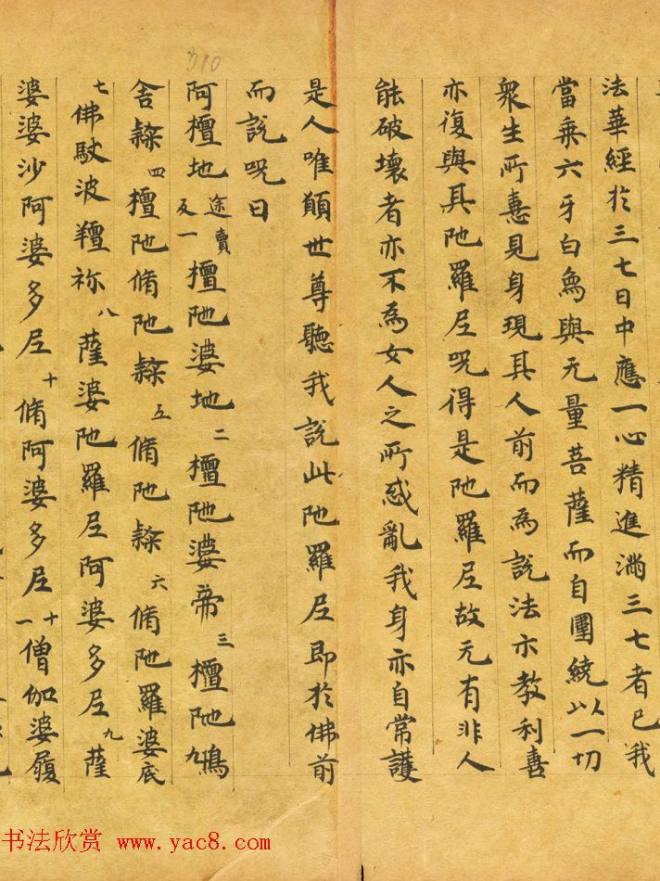 310
法華經於三七日中應一心精進滿三七者已我
當乗六牙白象與无量菩薩而自圍繞以一切
衆生所憙見身現其人前而為說法亦教利善
亦復與其陁羅尼呪得是陁羅尼故无有非人
能破壞者亦不為女人之所惑亂我身亦自常護
是人唯願世尊聽我說此陁羅尼即於佛前
而說呪曰
阿檀地途賣反一檀陁婆地二檀陁婆帝三檀陁鳩
舍隸四檀陁脩陁隸五脩陁隸六脩陁羅婆底
七佛馱波羶祢八薩婆陁羅尼阿婆多尼九薩
婆婆沙阿婆多尼十脩阿婆多尼十一僧伽婆履
书法欣赏 www.yac8.com